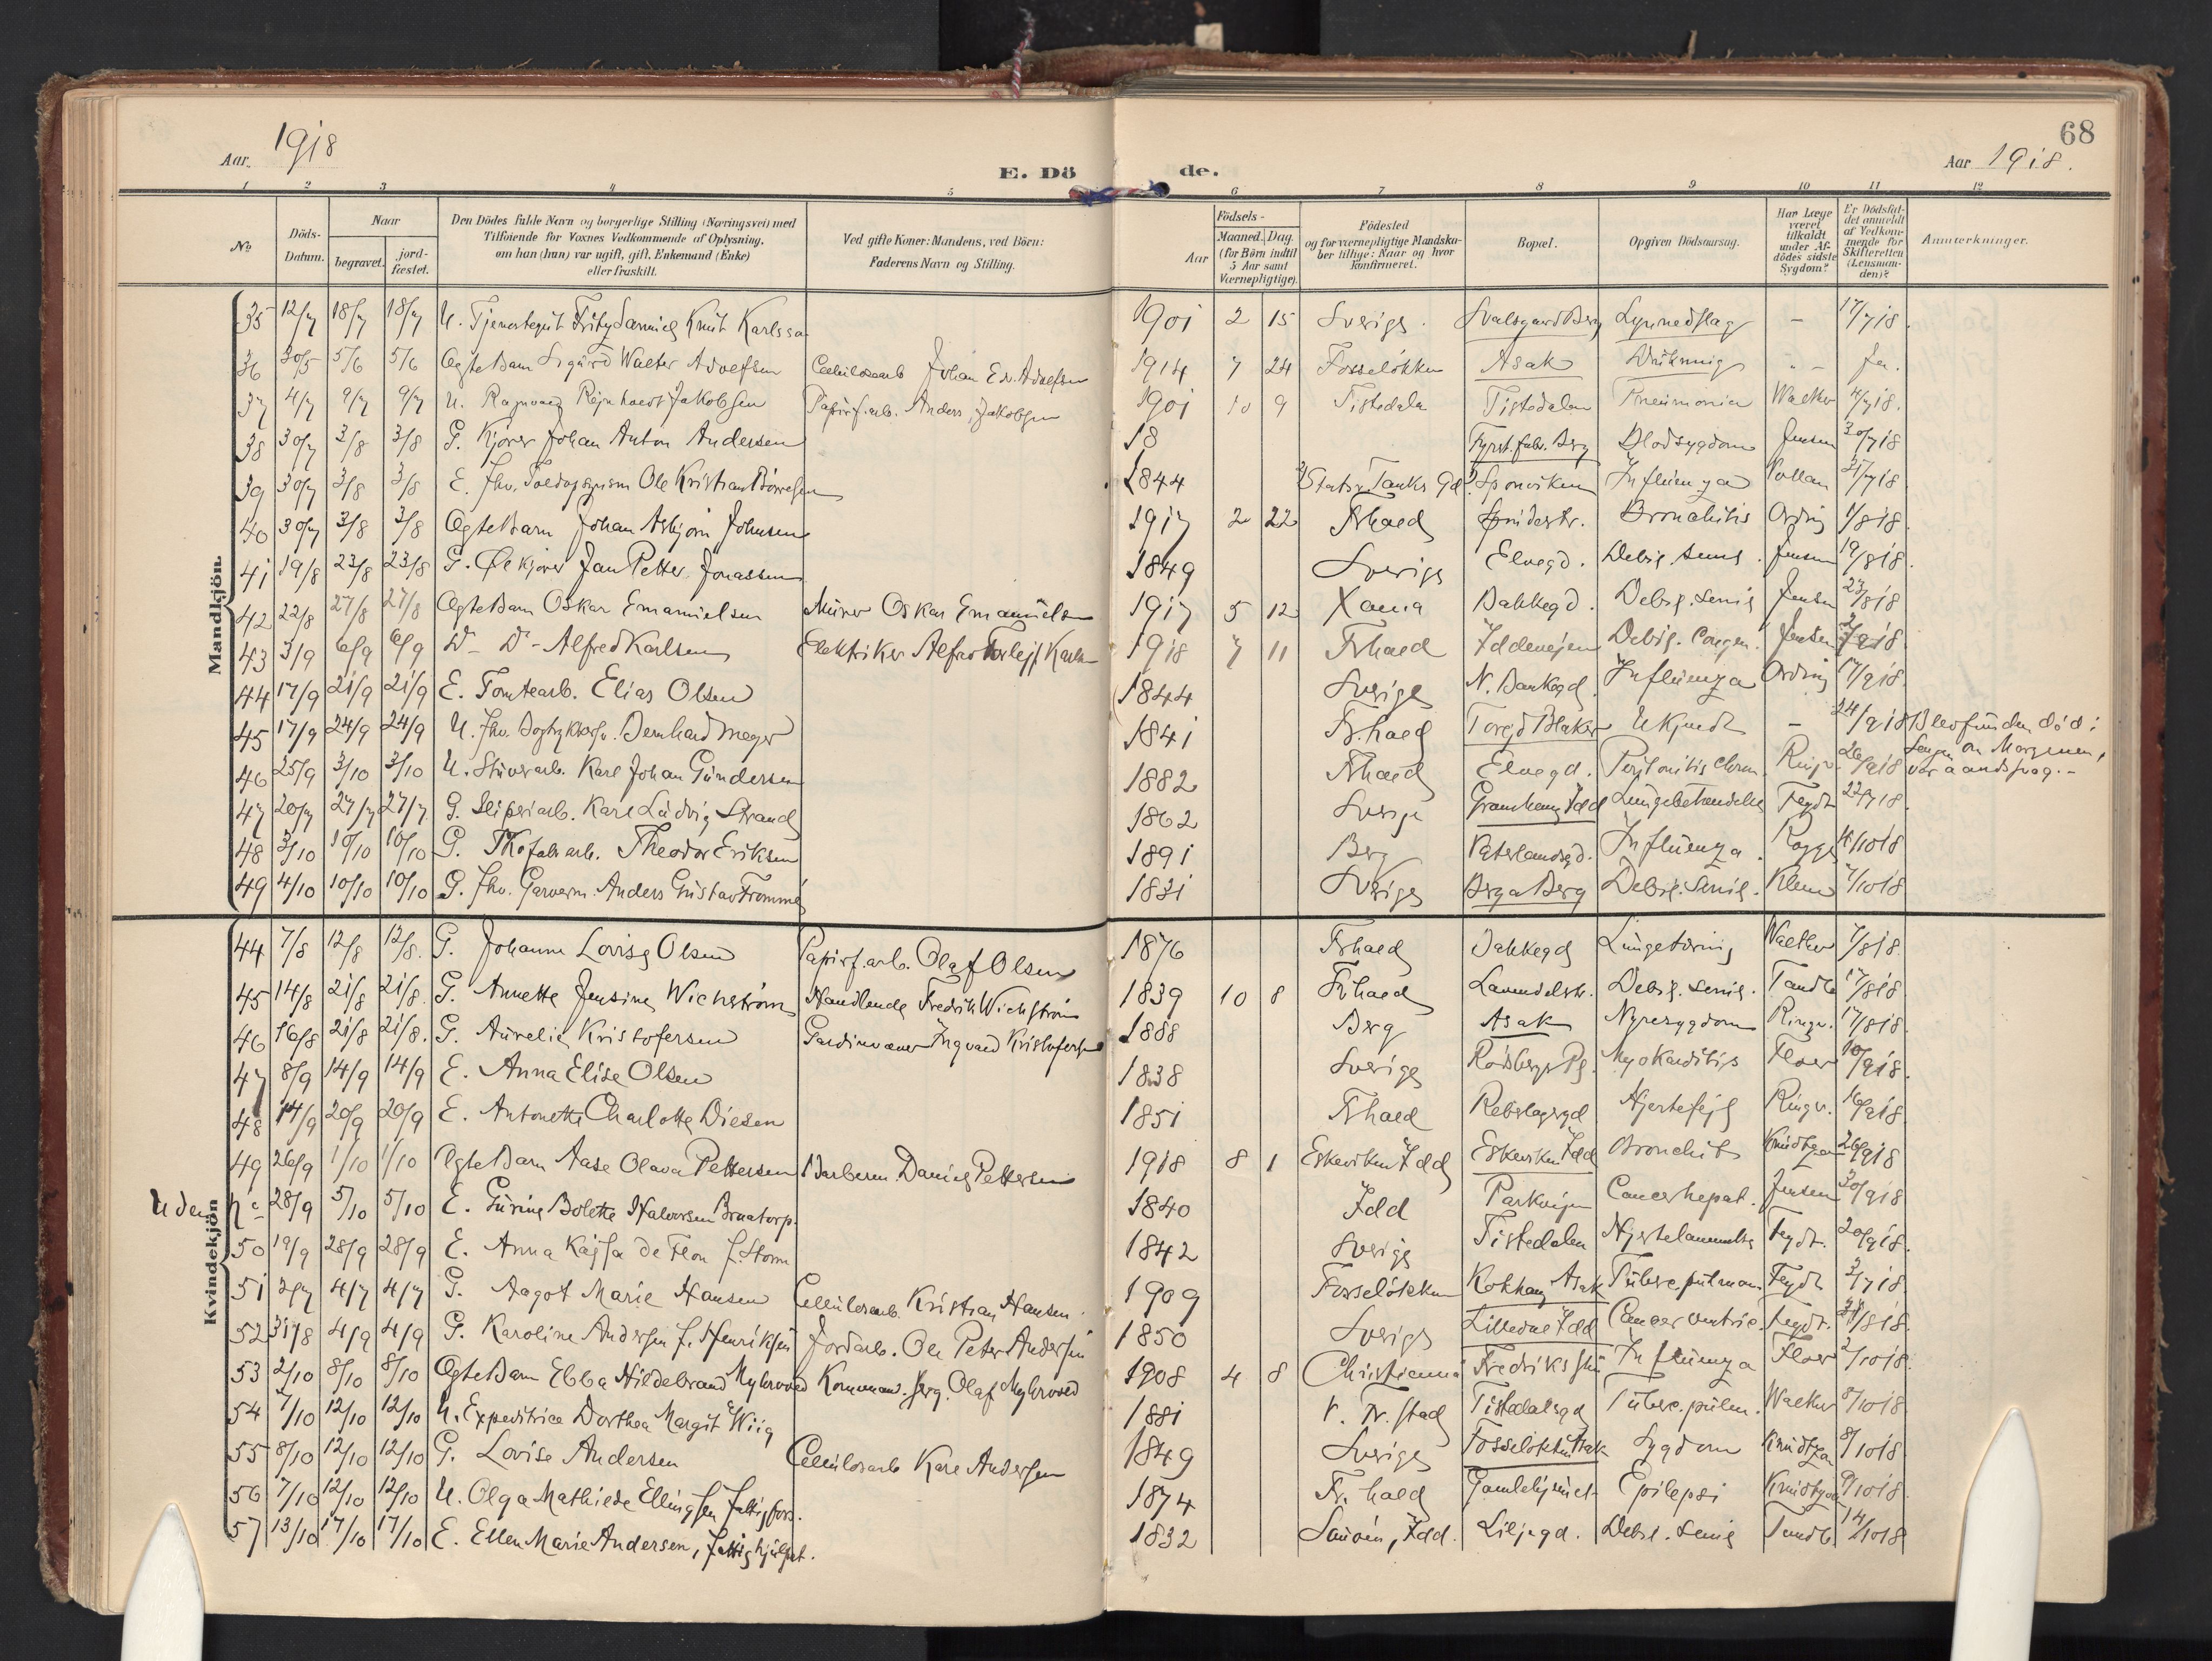 68
Aar. 1918
E. Dö de.
Aar 1918.
1 2 3 4 5 6 7 8 9 10 11 12
No
Döds-Datum.
Naar
begravet. jordfæstet.
Den Dödes fulde Navn og borgerlige Stilling (Næringsvei) med
Tilföiende for Voxnes Vedkommende af Oplysning,
om han (hun) var ugift, gift, Enkemand (Enke)
eller fraskilt.
Ved gifte Koner: Mandens, ved Börn:
Faderens Navn og Stilling.
Födsels-
Aar Maaned. Dag.
(for Börn indtil
5 Aar samt
Værnepligtige).
Födested
og for værnepligtige Mandska-
ber tillige: Naar og hvor
konfirmeret.
Bopæl.
Opgiven Dödsaarsag.
Har Læge
været
tilkaldt
under Af-
dödes sidste
Sygdom?
Er Dödsfal-
det anmeldt
af Vedkom-
mende for
Skifteretten
(Lensman-
den)?
Anmærkninger.
Mandkjön.
35 12/7 18/7 18/7 U. Tjenestegut Knut Karlsson 1901 2 15 Sverige. Berg - 17/7 18.
36 30/5 5/6 5/6 Ægte Barn Sigurd Walter Adolfsen Cellulosearb Johan Edv. Adolfsen 1914 7 24 Fosseløkken Asak Drukning - - Ja.
37 4/7 9/7 9/7 U. Ragnvald Reinhardt Jakobsen Papirf.arb. Anders Jakobsen 1901 10 9 Tistedalen Tistedalen Pneumonia Walther 4/7 18.
38 30/7 3/8 3/8 G. Kjører Johan Anton Andersen 18 Berg Blodsygdom Jensen 30/7 18
39 30/7 3/8 3/8 E. fhv. Toldopsynsm Ole Kristian Børresen 1844 Tanks Sponviken Influenza 31/7 18.
40 30/7 3/8 3/8 Ægte Barn Johan Asbjørn Johnsen 1917 2 22 Frhald Bronchitis Ording 1/8 18.
41 19/8 23/8 23/8 G. Ølkjører Jan Petter Jonassen 1849 Sverige Elvegd. Debil. senil. Jensen 19/8 18.
42 22/8 27/8 27/8 Ægte Barn Oskar Emanuelsen Murer Oskar Emanuelsen 1917 5 12 Xania Bakkegd. Debil. senil Jensen 23/8 18
43 3/9 6/9 6/9 D- D- Alfred Karlsen Elektriker Alfred Torleif Karlsen 1918 7 11 Frhald Iddeveien Debil. congen. Jensen 18.
44 17/9 21/9 21/9 E. Tomtearb. Elias Olsen 1844 Sverige N. Bankegd. Influenza Ording 17/9 18.
45 17/9 24/9 24/9 U. fhv. Bernhard Meyer 1841 Fr.hald Ukjendt - 24/9 18 Blev funden død i
Sengen om Morgenen,
var aandssvag.-
46 25/9 3/10 3/10 U. Stuverarb. Karl Johan Gundersen 1882 Frhald Elvegd. Peritonitis chron. Ringv. 26/9 18
47 20/7 27/7 27/7 G. Sliperiarb. Karl Ludvig Strand 1862 Sverige Idd Lungebetændelse Feydt 22/7 18.
48 3/10 10/10 10/10 G. Skofabr.arb. Theodor Eriksen 1891 Berg Vaterlandsgd. Influenza. 4/10 18
49 4/10 10/10 10/10 G. fhv. Garverm. Anders Gustav Tromme 1831 Sverige Berga Berg Debil. Senil. Klem 7/10 18
Kvindekjön
44 7/8 12/8 12/8. G. Johanne Lovise Olsen Papirf.arb. Olaf Olsen 1876 Frhald Bakkegd Lungetæring Walther 7/8 18.
45 14/8 21/8 21/8. G. Annette Jensine Wichstrøm Handlende Fredrik Wichstrøm 1839 10 8 Frhald Lavendelstr. Debil. senil. Tandb 17/8 18.
46 16/8 21/8 21/8. G. Aurelia Kristofersen Gardinvæver Ingvard Kristofersen 1888 Berg Asak Nyresygdom Ringv. 17/8 18.
47 8/9 14/9 14/9 E. Anna Elise Olsen 1838 Sverige Rødsbergs Pl. Myokarditis Floor 10/9 18.
48 14/9 20/9 20/9 E. Antonette Charlotte Diesen 1851 Frhald Rebslagergd Hjertefeil Ringv. 16/9 18.
49 26/9 1/10 1/10 Ægte Barn Aase Olava Pettersen Barberm. Daniel Pettersen 1918 8 1 Eskeviken Idd Eskeviken Idd Bronchit Knudtzen 26/9 18
Uden No 28/9 5/10 5/10 E. Gurine Bolette Halvorsen Bruatorp. 1840 Idd Parkveien Cancer hepat. Jensen 30/9 18
50 19/9 28/9 28/9 E. Anna Kajsa de Flon f. Storm 1842 Sverige Tistedalen Hjertelammelse Feydt. 20/9 18.
51 2/7 4/7 4/7 G. Aagot Marie Hansen Cellulosearb. Kristian Hansen. 1909 Fosseløkken Asak Tuberc. pulmon. Feydt 3/7 18.
52 31/8 4/9 4/9 G. Karoline Andersen f. Henriksen Jordarb. Ole Peter Andersen 1850 Sverige Idd Cancer ventric. Feydt. 31/8 18.
53 2/10 8/10 8/10 Ægte Barn Ebba Hildebrand Myhrvold Olaf Myhrvold 1908 4 8 Christiania Influenza Floor 2/10 18.
54 7/10 12/10 12/10 U. Expeditrice Dorthea Margit Wiig 1881 F. Fr.stad Tuberc. pulm. Walther 8/10 18
55 8/10 12/10 12/10 G. Lovise Andersen Cellulosearb Karl Andersen 1849 Sverige Fosseløkken Asak Sygdom Knudtzen 8/10 18.
56 7/10 12/10 12/10 U. Olga Mathilde Ellingsen fattigfors. 1874 Fr.hald Epilepsi Knudtzen 9/10 18.
57 13/10 17/10 17/10 E. Ellen Marie Andersen, fattighjulpet. 1832 Sauøen, Idd. Liljegd. Debil. senil Tandb 14/10 18